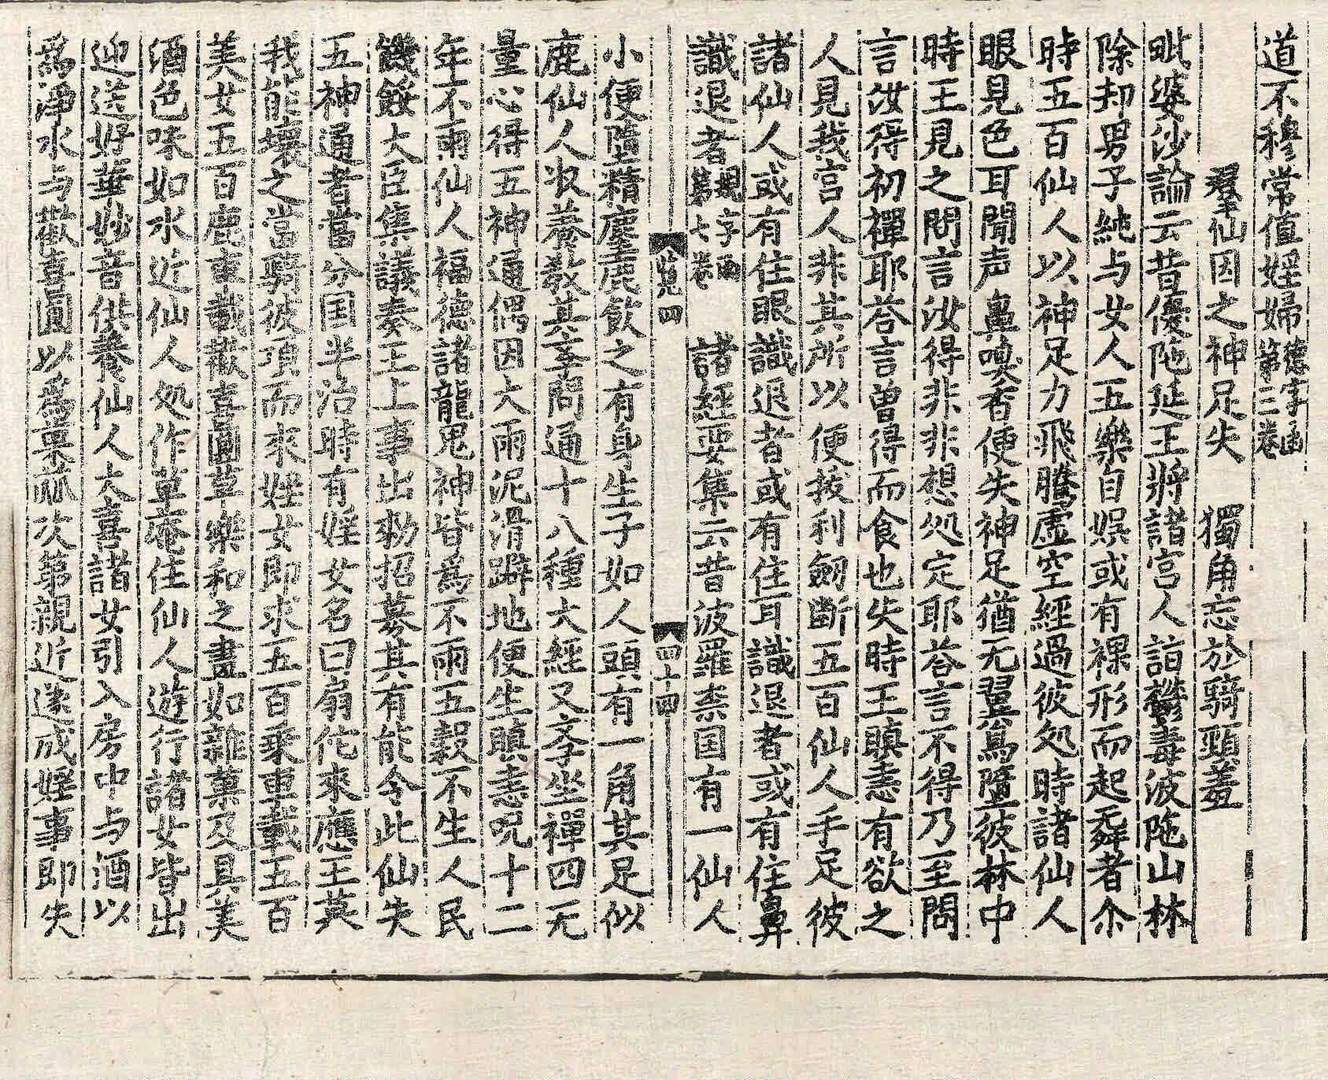 道不穆常值婬婦德字函第三卷
群仙因之神足失　獨角忘於騎頸羞
毗婆沙論云昔優陁延王將諸宮人詣欝毒波陁山林
除却男子純与女人五樂自娛或有裸形而起舞者尒
時五百仙人以神足力飛騰虛空經過彼処時諸仙人
眼見色耳聞声鼻嗅香便失神足猶无翼鳥墮彼林中
時王見之問言汝得非非想処定耶荅言不得乃至問
言汝得初禪耶荅言曽得而食也失時王瞋恚有欲之
人見我宮人非其所以便拔利劒斷五百仙人手足彼
諸仙人或有住眼識退者或有住耳識退者或有住鼻
識退者規字函第七卷　諸經要集云昔波羅柰国有一仙人
覔四　四十四
小便墮精麀鹿飲之有身生子如人頭有一角其足似
鹿仙人収養教其李問通十八種大經又李坐禪四无
量心得五神通偶因大雨泥滑躃地便生瞋恚呪十二
年不雨仙人福德諸龍鬼神皆爲不雨五穀不生人民
饑餒大臣集議奏王上事出勑招募其有能令此仙失
五神通者當分国半治時有婬女名曰扇佗來應王募
我能壞之當騎彼項而來婬女即求五百乘車載五百
美女五百鹿車載歡喜圓草樂和之畫如雜菓及具美
酒色味如水近仙人処作草庵住仙人遊行諸女皆出
迎送好華妙音供養仙人大喜諸女引入房中与酒以
爲淨水与歡喜圓以爲菓苽次第親近遂成婬事即失